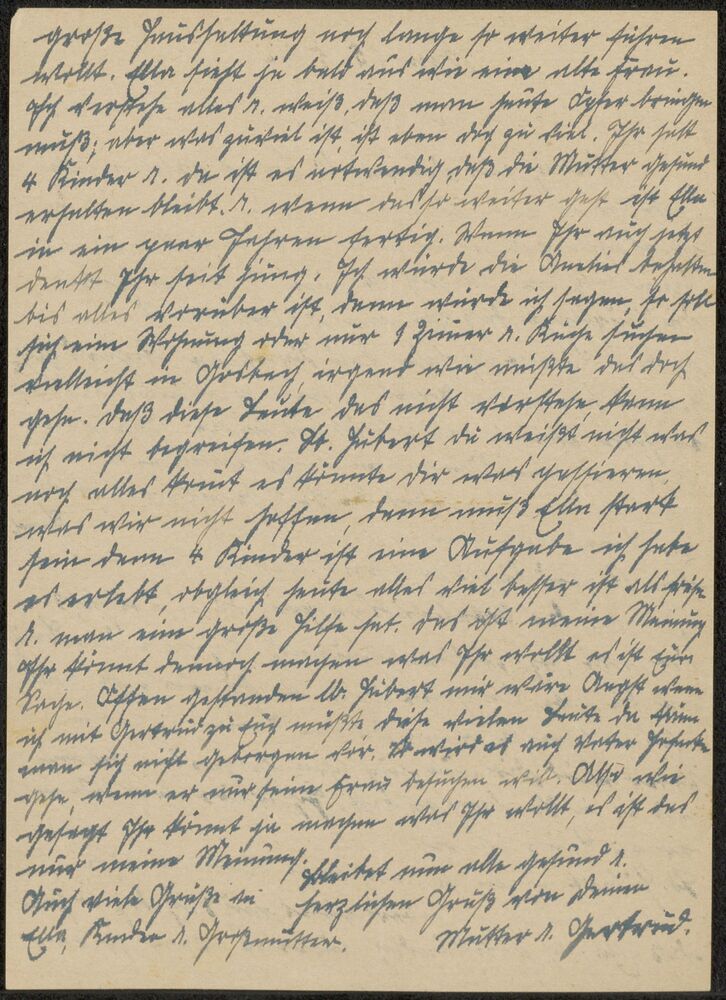 große Haushaltung noch lange so weiter führen
wollt. Ella sieht ja bald aus wie eine alte Frau.
Ich verstehe alles u. weiß, daß man heute Opfer bringen
muß; aber was zuviel ist, ist eben doch zu viel. Ihr habt
4 Kinder u. da ist es notwendig, daß die Mutter gesund
erhalten bleibt. u. wenn das so weiter geht ist Ella
in ein paar Jahren fertig. Wenn Ihr auch jetzt
denkt Ihr seit jung. Ich würde die behalten
bis alles vorüber ist, dann würde ich sagen, so soll
sich eine Wohnung oder nur 1 Zimmer u. Küche suchen
vielleicht in Gosbach, irgend wie müßte das doch
gehn. Daß diese Leute das nicht verstehe kann
ich nicht begreifen. Lb. Hubert du weißt nicht was
noch alles kommt es könnte dir was passieren,
was wir nicht hoffen, dann muß Ella stark
sein denn 4 Kinder ist eine Aufgabe ich habe
es erlebt, obgleich heute alles viel besser ist als früher
u. man eine große Hilfe hat. Das ist meine Meinung
Ihr könnt dennoch machen was Ihr wollt es ist Eure
Sache. Offen gestanden lb. Hubert mir wäre Angst wenn
ich mit Gertrud zu Euch müßte diese vielen Leute da kann
man sich nicht geborgen vor. So wird es auch Vater
gehn, wenn er nur seine Frau besuchen will. Also wie
gesagt Ihr könnt ja machen was Ihr wollt, es ist das
nur meine Meinung. Bleibet nun alle gesund u.
Auch viele Grüße an herzlichen Gruß von Deiner
Ella, Kinder u. Großmutter. Mutter u. Gertrud.